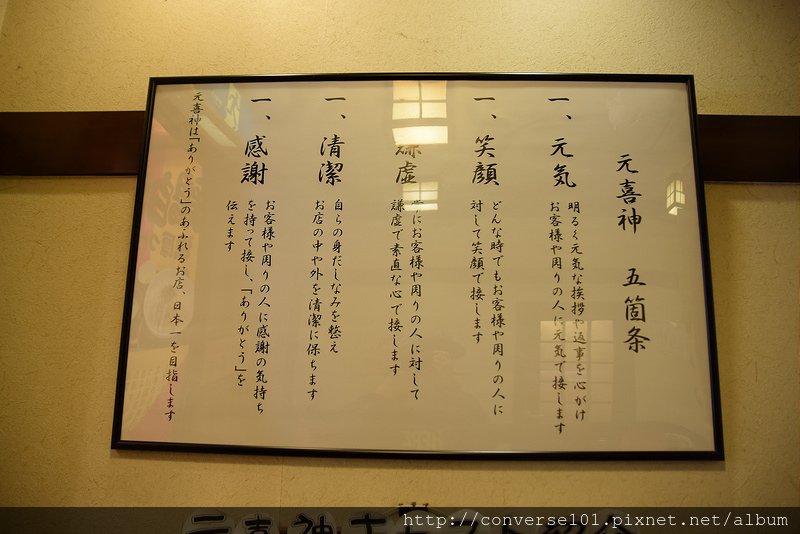 元喜神 五箇条
一、元気
明るく元気な挨拶や返事を心がけ
お客様や周りの人に元気で接します
一、笑顔
どんな時でもお客様や周りの人に
対して笑顔で接します
謙虚
常にお客様や周りの人に対して
謙虚で素直な心で接します
一、清潔
自らの身だしなみを整え
お店の中や外を清潔に保ちます
一、感謝
お客様や周りの人に感謝の気持ち
を持って接し、「ありがとう」を
伝えます
元喜神は「ありがとう」のあふれるお店、日本一を目指します
http://converse101.pixnet.net/album